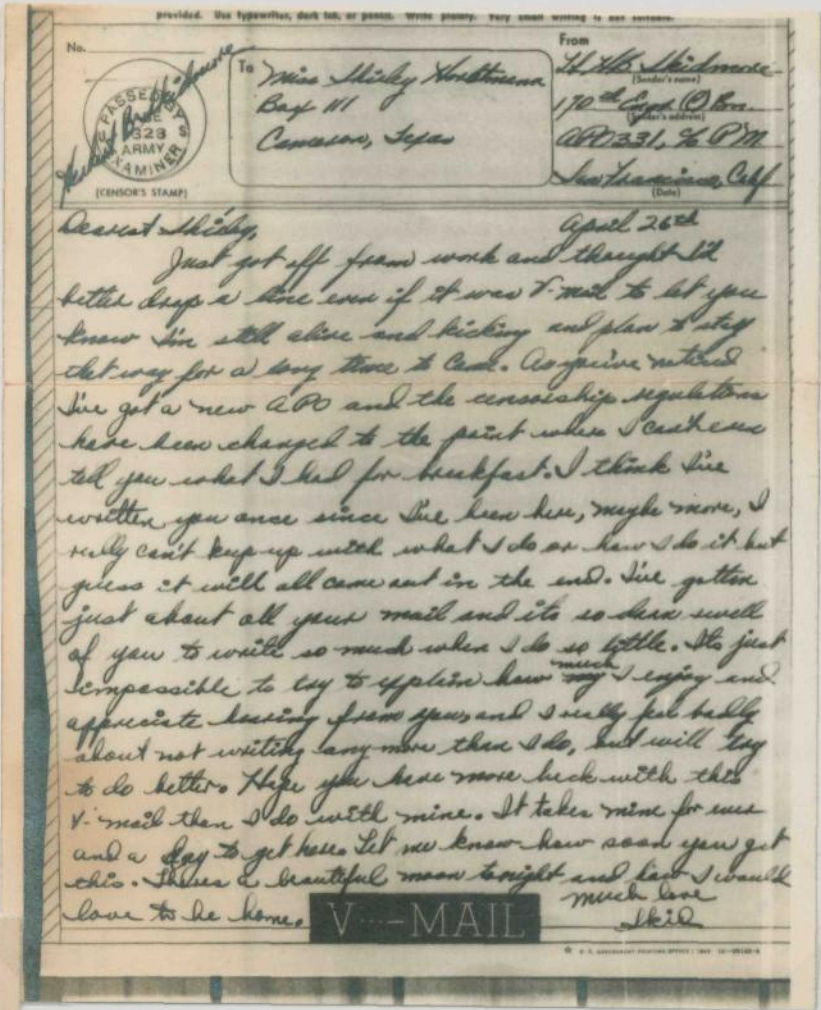 provided. Use typewriter, dark ink, or pencil. Write plainly. Very small writing is not suitable.
No.
From
To
Miss Shirley
Box 111
Cameron, Texas
Lt. HB Skidmore
(Sender's name)
170th Engr (C) Bn.
(Sender's address)
APO 331, % PM
San Francisco, Calif
(Date)
PASSED BY
328
ARMY
EXAMINER
Herbert B Skidmore
(CENSOR'S STAMP)
Dearest Shirley,
April 26th
Just got off from work and thought I'd
better drop a line even if it was V-mail to let you
know I'm still alive and kicking and plan to stay
that way for a long time to come. As you've noticed
I've got a new APO and the censorship regulations
have been changed to the point where I can't even
tell you what I had for breakfast. I think I've
written you once since I've been here, maybe more, I
really can't keep up with what I do or how I do it but
guess it will all come out in the end. I've gotten
just about all your mail and its so darn swell
of you to write so much when I do so little. Its just
impossible to try to explain how much I enjoy and
appreciate hearing from you, and I really feel badly
about not writing any more than I do, but will try
to do better. Hope you have more luck with this
V-mail than I do with mine. It takes mine for ever
and a day to get here. Let me know how soon you get
this. Theres a beautiful moon tonight and how I would
love to be home.
Much love
Skid
V···—MAIL